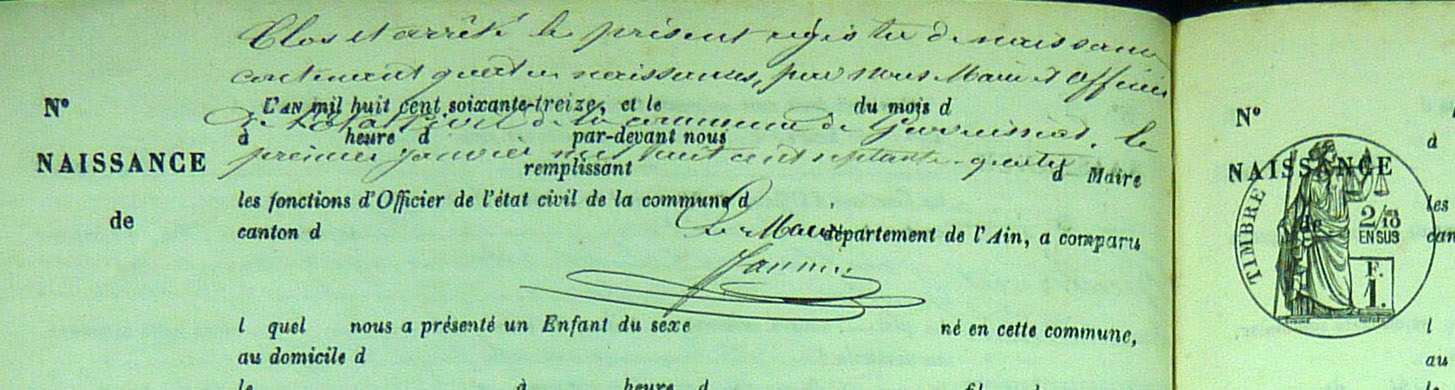 Clos et arrêté le présent registre de naissances
contenant quatre naissances, par nous Maire et officier
N° L'AN mil huit cent soixante-treize, et le du mois d
de l'état civil de la commune de le
à heure d par-devant nous
premier janvier mil huit cent septante-quatre
NAISSANCE remplissant d Maire
de les fonctions d'Officier de l'état civil de la commune d
Le Maire
canton d département de l'Ain, a comparu
l quel nous a présenté un Enfant du sexe né en cette commune,
au domicile d
le à heure d
N°
à
NAISSANCE
de
les
can
TIMBRE
2/10 EN SUS
F.
1.
l
au